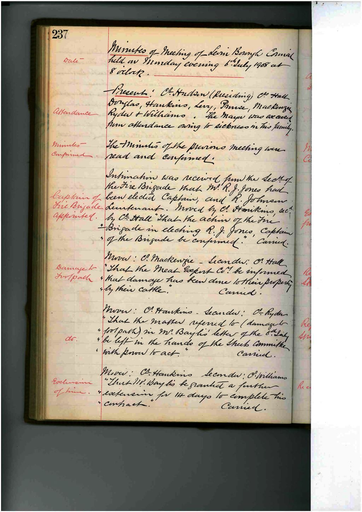 237
Minutes of Meeting of Levin Borough Council
held on Monday evening 6th July 1908 at
8 o'clock.
Date
Present: Cr Hudson (Presiding) Crs Hall
Douglas, Hankins, Levy, Prouse, MacKenzie
Ryder & Williams. The Mayor was excused
from attendance owing to sickness in his family
Attendance
The Minutes of the previous meeting were
read and confirmed.
Minutes
confirmation
Intimation was received from the Secty of
the Fire Brigade that Mr. R. J. Jones had
been elected Captain, and R. Johnson
Lieutenant. Moved by Cr Hankins, sec
by Cr Hall "That the action of the Fire
Brigade in electing R. J. Jones, Captain
of the Brigade be confirmed". Carried.
Captain of
Fire Brigade
appointed.
Mover: Cr Mackenzie - Seconder; Cr Hall
"That the Meat Export Co. be informed
that damage has been done to their property
by their cattle." Carried.
Damage to
footpath
Mover: Cr Hankins. Seconder: Cr Ryder
"That the matter referred to (damage to
footpath) in Mr. Bayliss' letter of the July
be left in the hands of the Streets Committee
with power to act" Carried.
do
Mover: Cr Hankins Seconder; Cr Williams
"That Mr. be granted a further
extension for days to complete his
contract." Carried.
Extension
of time.